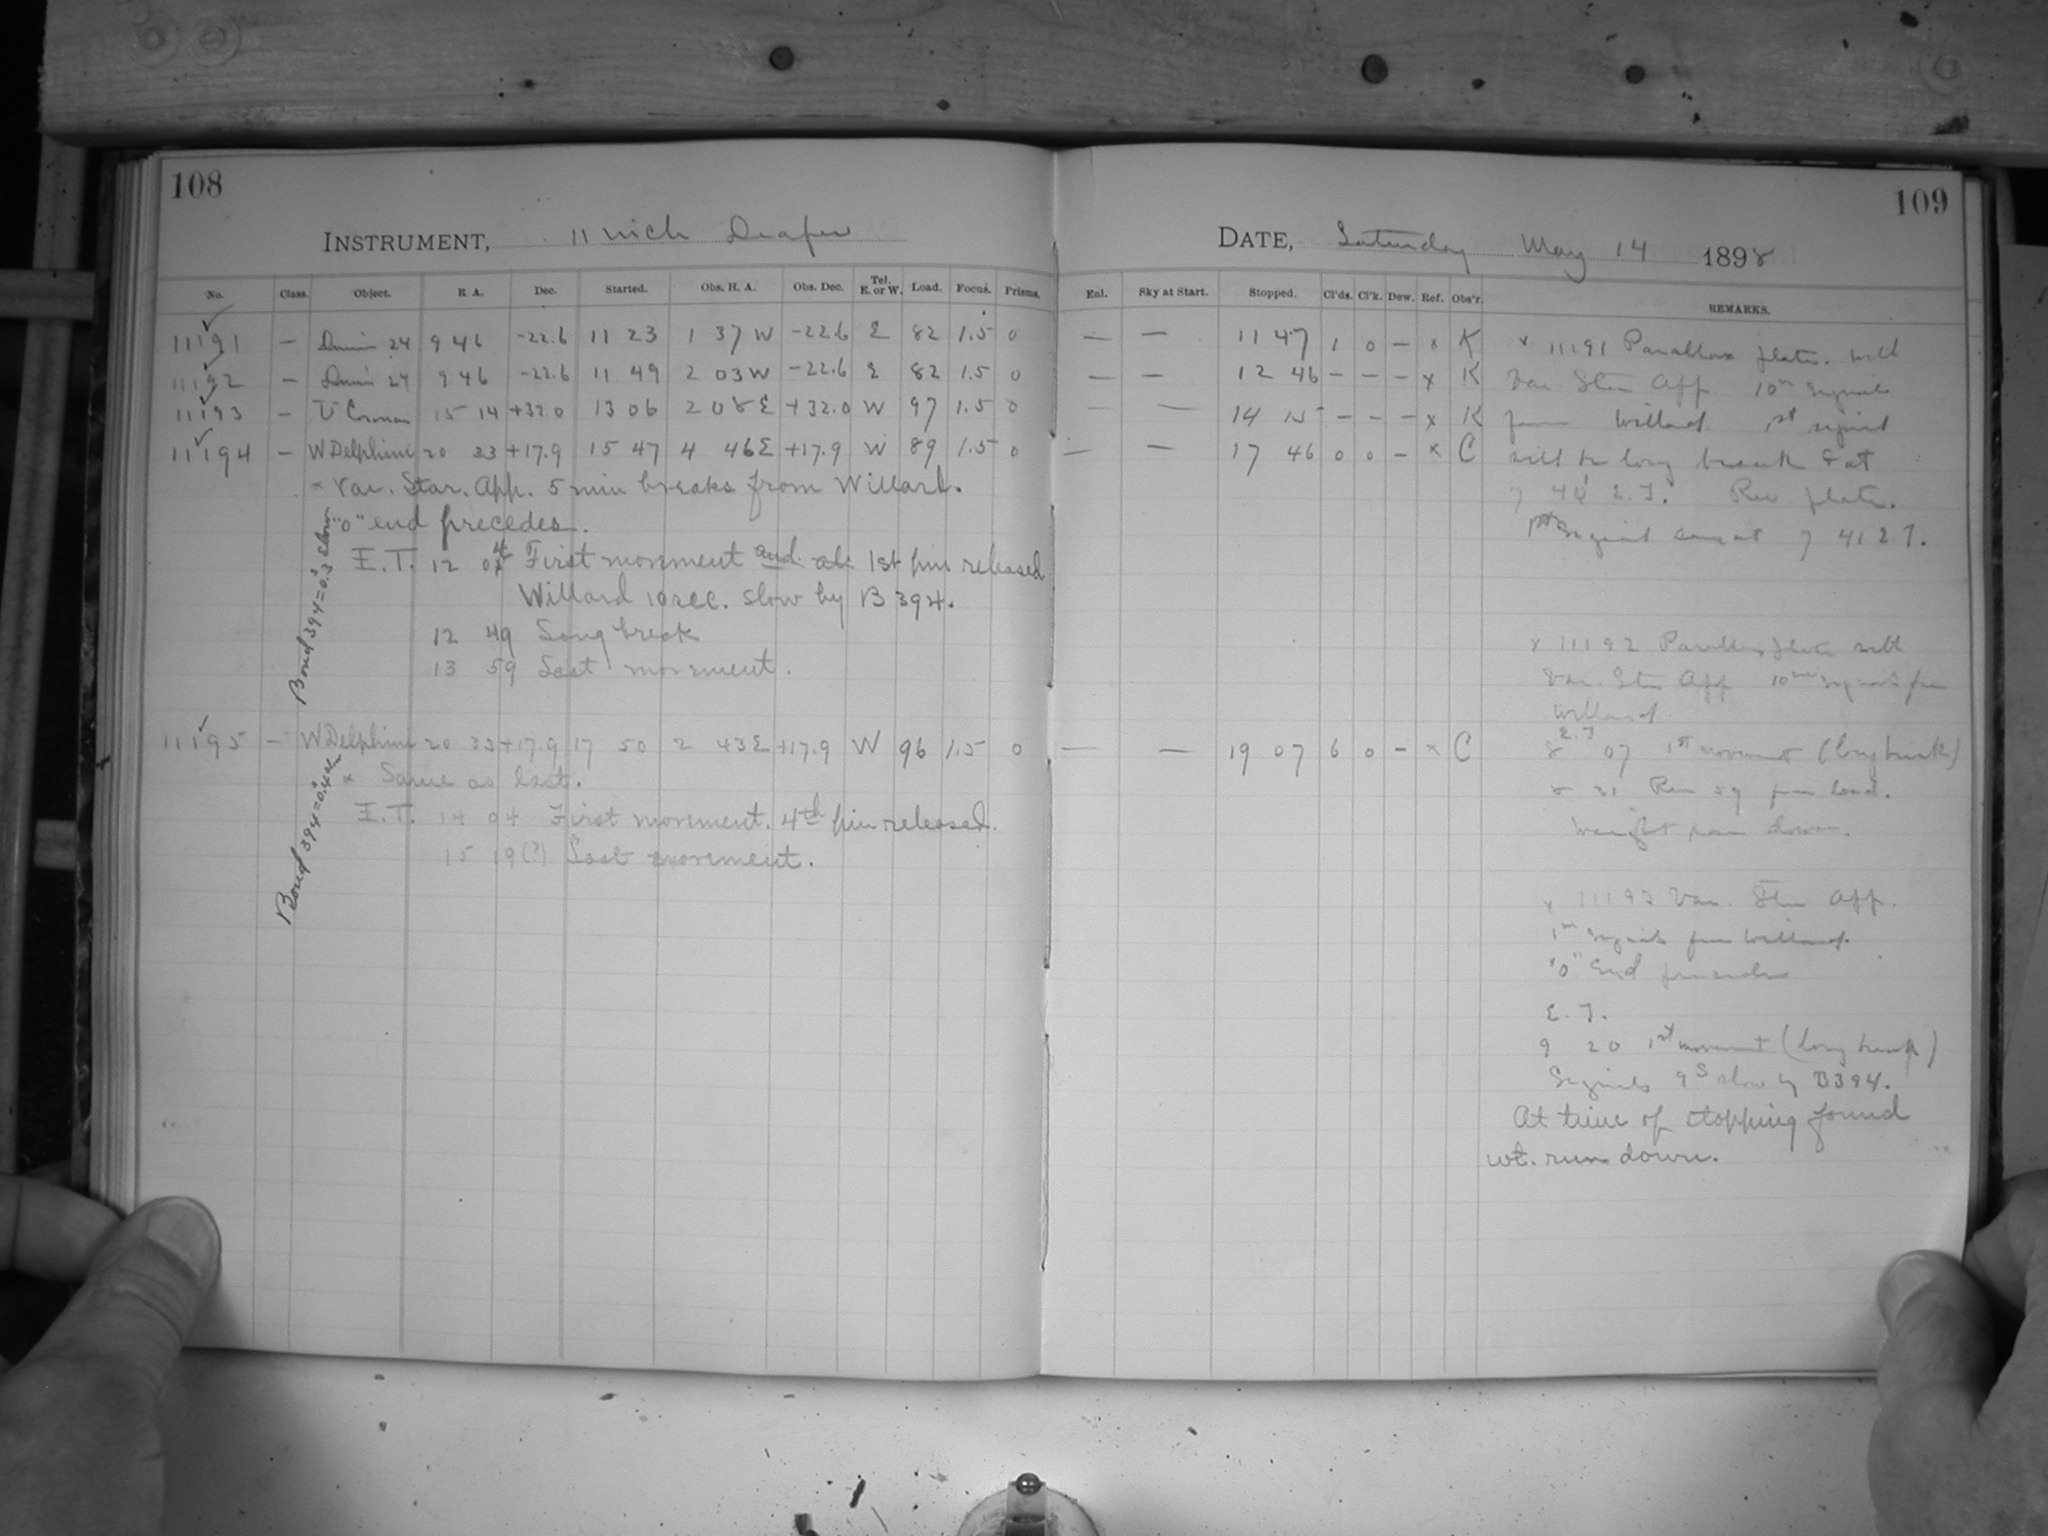 108
INSTRUMENT, 11 inch Draper
No. Class. Object. R. A. Dec. Started. Obs. H. A. Obs. Dec. Tel. E. or W. Load. Focus. Prisms.
11191 — 24 9 46 -22.6 11 23 1 37 W -22.6 E 82 1.5 0
11192 — 24 9 46 -22.6 11 49 2 03 W -22.6 E 82 1.5 0
11193 — U Coronae 15 14 +32.0 13 06 2 08 E +32.0 W 97 1.5 0
11194 — W Delphini 20 33 +17.9 15 47 4 46 E +17.9 W 89 1.5 0
× Var. Star. App. 5 min breaks from Willard.
"0" end precedes.
E.T. 12 04 First movement and 1st pin released
Willard 10 sec. slow by B 394.
12 49 Long break
13 59 Last movement.
Bond 394 = 0.3s slow
11195 — W Delphini 20 33 +17.9 17 50 2 43 E +17.9 W 96 1.5 0
× Same as last.
E.T. 14 04 First movement. 4th pin released.
15 19(?) Last movement.
Bond 394 = 0.4s
109
DATE, Saturday May 14 1898
Enl. Sky at Start. Stopped. Cl'ds. Cl'k. Dew. Ref. Obs'r. REMARKS.
— — 11 47 1 0 — × K
— — 12 46 — — — × K
— — 14 15 — — — × K
— — 17 46 0 0 — × C
— — 19 07 6 0 — × C
× 11191 Parallax plate. with
Var. Star App. 10m signals
from Willard. 1st signal
will be long break & at
7 40 E.T. Rev. plate.
1st signal came at 7 41 E.T.
× 11192 Parallax plate with
Var. Star App 10m signals from
Willard.
E.T.
8 07 1st movement (long break)
8 31 Rem 59 from load.
Weight ran down.
× 11193 Var. Star App.
1m signals from Willard.
"0" End precedes
E.T.
9 20 1st movement (long break)
Signals 9s slow by B394.
At time of stopping found
wt. run down.